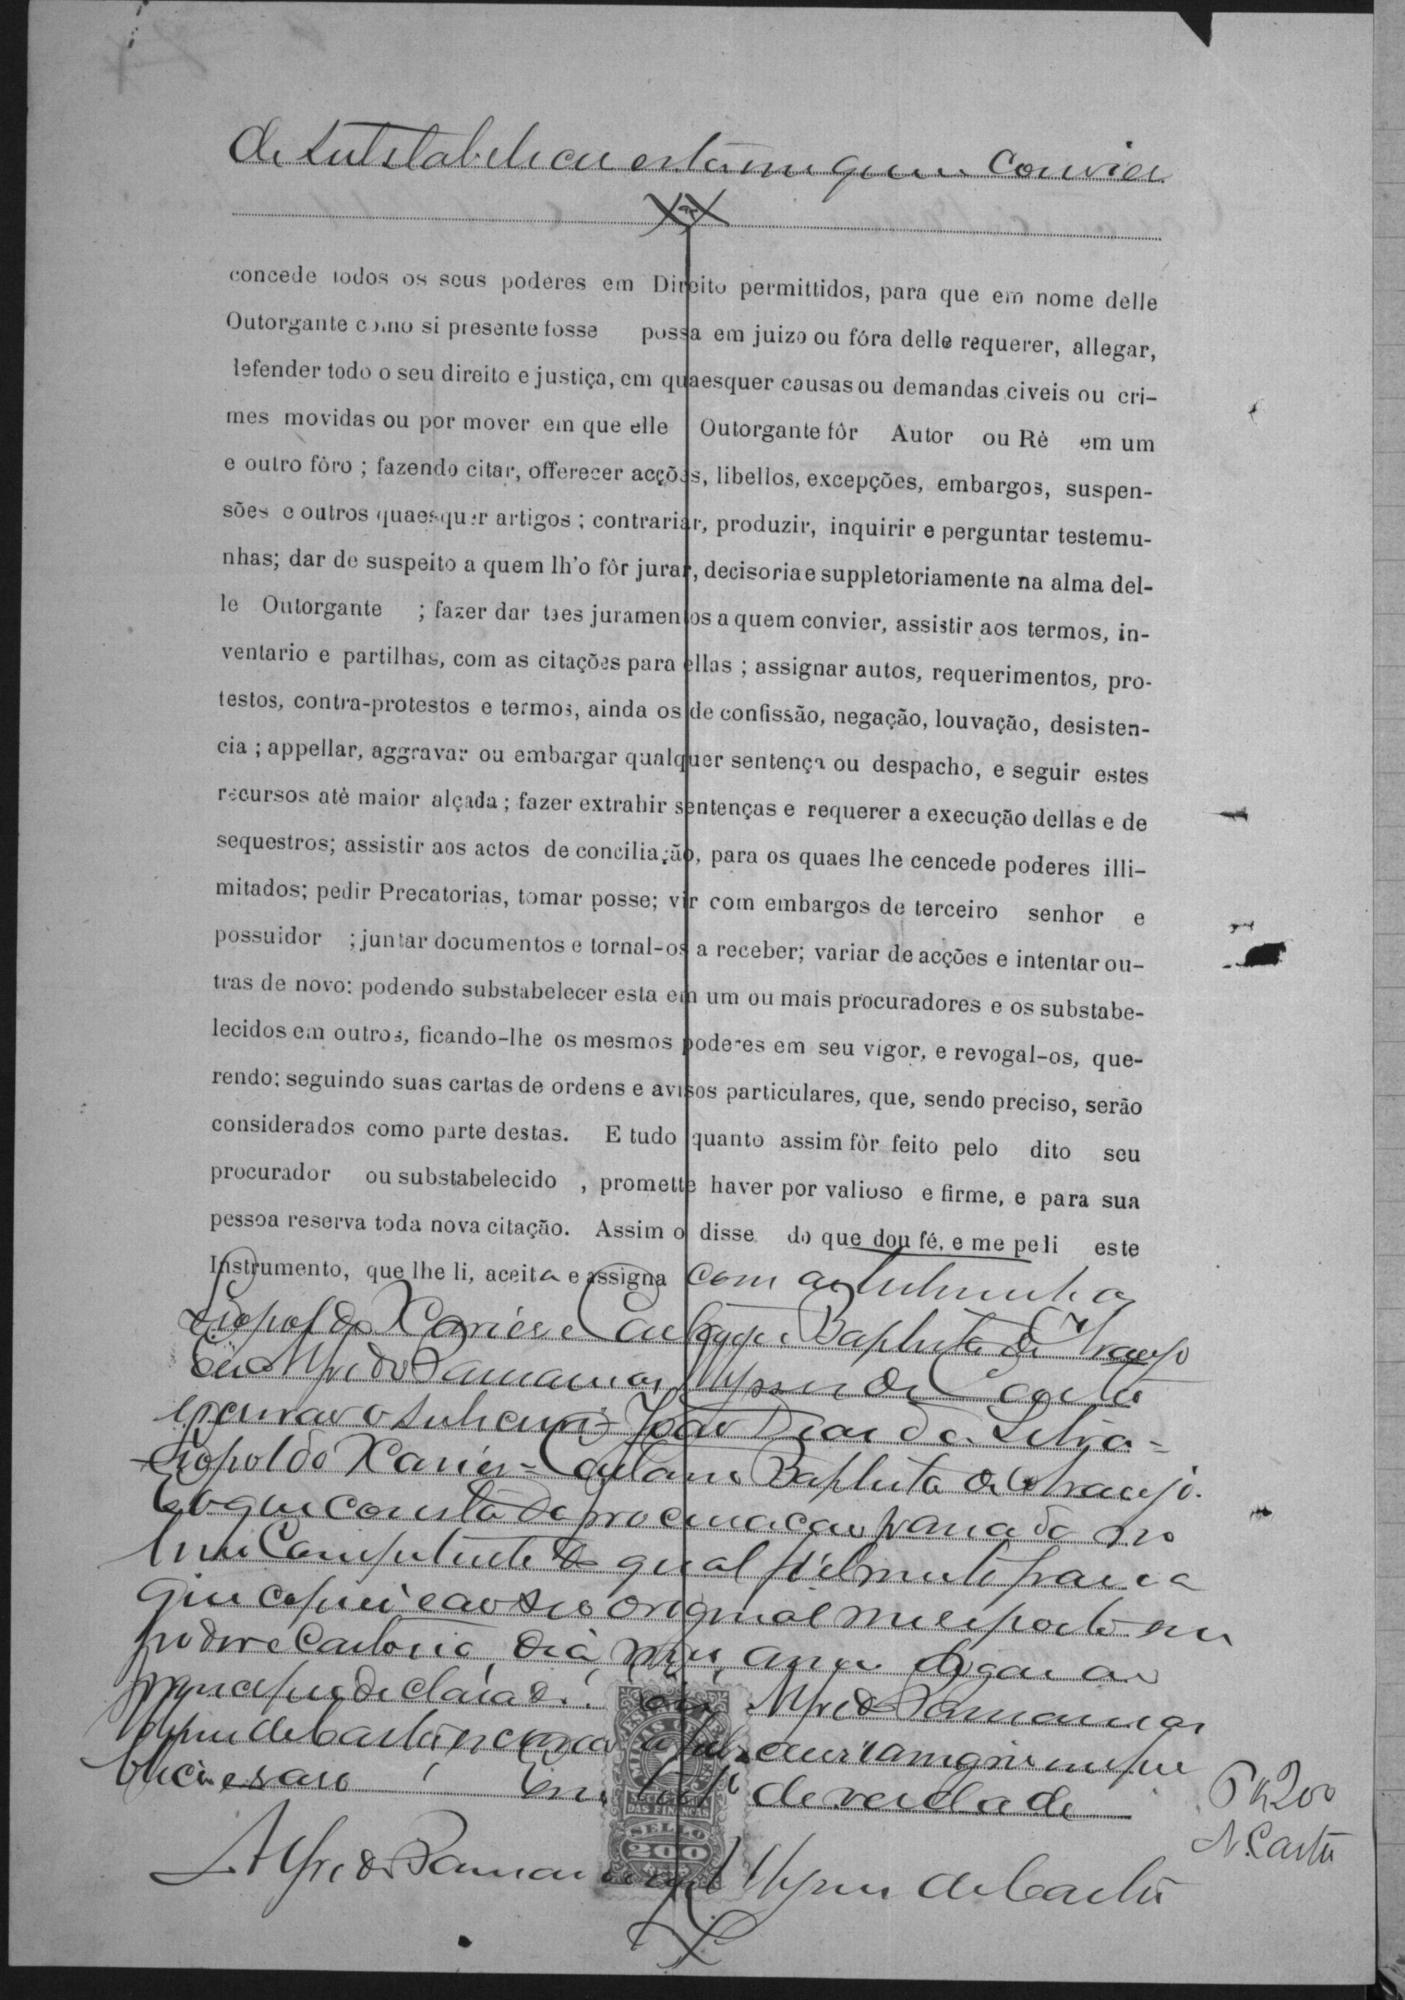 de substabelecer esta em quem convier
concede todos os seus poderes em Direito permittidos, para que em nome delle
Outorgante como si presente fosse possa em juizo ou fóra delle requerer, allegar,
defender todo o seu direito e justiça, em quaesquer causas ou demandas civeis ou cri-
mes movidas ou por mover em que elle Outorgante fôr Autor ou Rè em um
e outro fôro ; fazendo citar, offerecer acções, libellos, excepções, embargos, suspen-
sões e outros quaesquer artigos ; contrariar, produzir, inquirir e perguntar testemu-
nhas; dar de suspeito a quem lh'o fôr jurar, decisoria e suppletoriamente na alma del-
le Outorgante ; fazer dar taes juramentos a quem convier, assistir aos termos, in-
ventario e partilhas, com as citações para ellas ; assignar autos, requerimentos, pro-
testos, contra-protestos e termos, ainda os de confissão, negação, louvação, desisten-
cia ; appellar, aggravar ou embargar qualquer sentença ou despacho, e seguir estes
recursos até maior alçada ; fazer extrahir sentenças e requerer a execução dellas e de
sequestros; assistir aos actos de conciliação, para os quaes lhe cencede poderes illi-
mitados; pedir Precatorias, tomar posse; vir com embargos de terceiro senhor e
possuidor ; juntar documentos e tornal-os a receber; variar de acções e intentar ou-
tras de novo: podendo substabelecer esta em um ou mais procuradores e os substabe-
lecidos em outros, ficando-lhe os mesmos poderes em seu vigor, e revogal-os, que-
rendo; seguindo suas cartas de ordens e avisos particulares, que, sendo preciso, serão
considerados como parte destas. E tudo quanto assim fôr feito pelo dito seu
procurador ou substabelecido , promette haver por valioso e firme, e para sua
pessoa reserva toda nova citação. Assim o disse do que dou fé, e me pedi este
Instrumento, que lhe li, aceita e assigna com as testemunhas
Leopoldo Xavier e Caetano Baptista de Araujo
Eu Alfredo de Castro
escrevi João Dias da Silva =
Leopoldo Xavier = Caetano Baptista de Araujo.
E o que consta da procuração passada no
livro competente da qual fielmente para a
qui copiei e ao seo original me reporto em
poder e Cartorio, dia, mez, anno e logar ao
principio declarado. Eu Alfredo
de Castro
necessario Em test. de verdade
MINAS GERAES
SECRETARIA
DAS FINANÇAS
SELLO
200
REIS
Alfredo de Castro
200
N. Castro